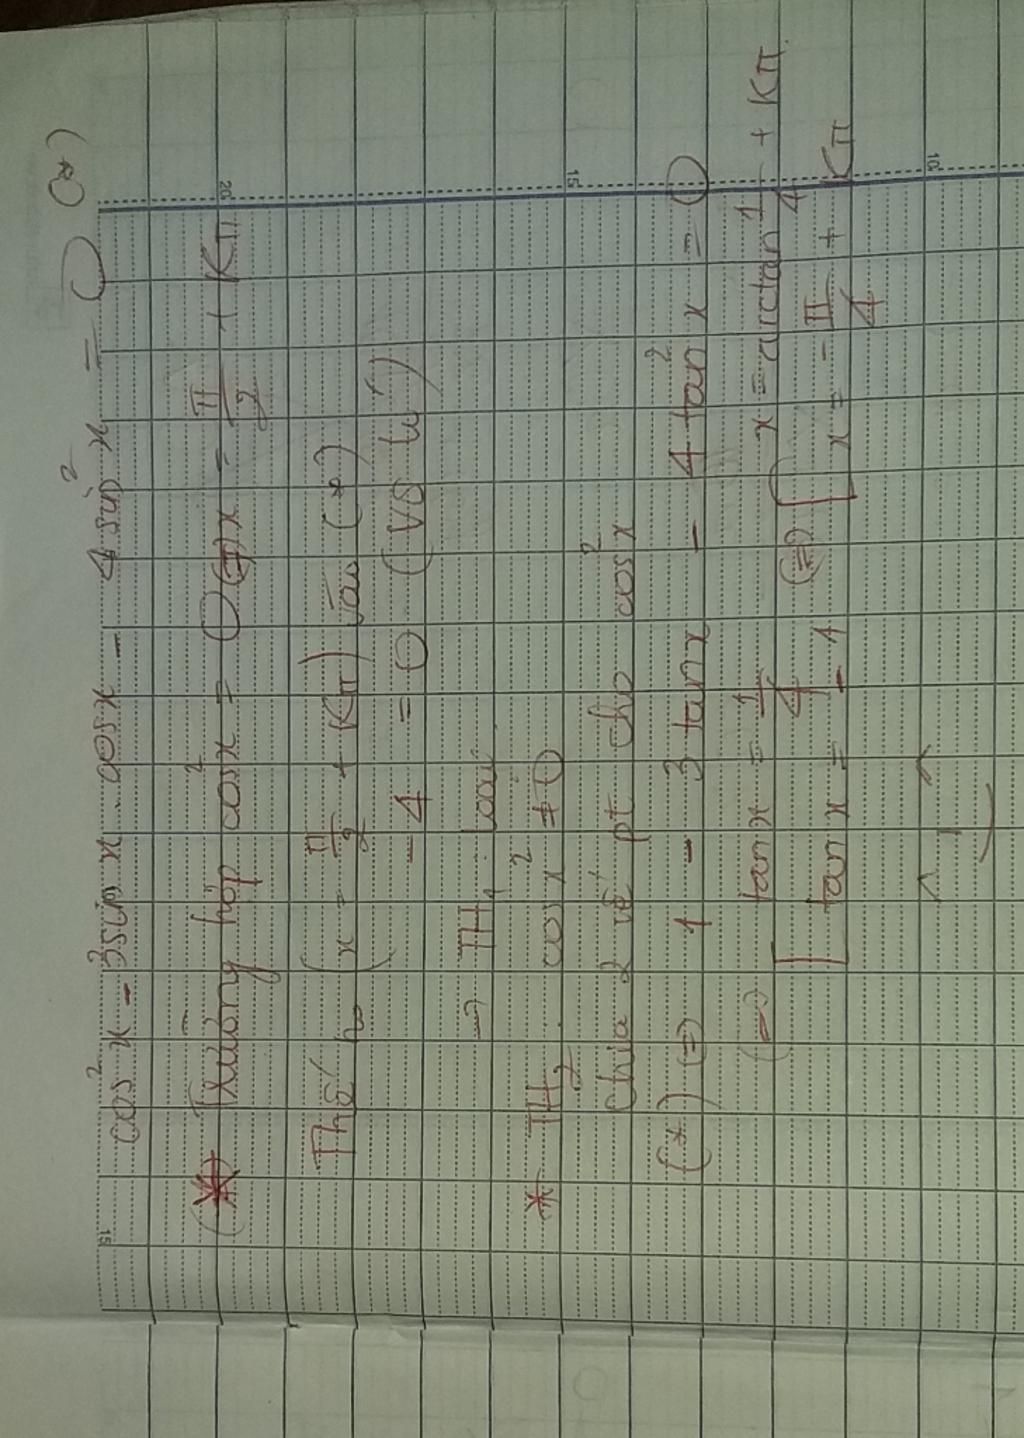 cos²x - 3sin x . cos x - 4 sin²x = 0 (*)
(*) Trường hợp cos²x = 0 (=) x = π/2 + Kπ
Thế (x = π/2 + Kπ) vào (*)
- 4 = 0 (vô lí)
=> TH₁ loại
* TH₂ cos²x ≠ 0
Chia 2 vế pt cho cos²x
(*) (=) 1 - 3 tan x - 4 tan²x = 0
(=) [ tan x = 1/4 (=) [ x = arctan 1/4 + Kπ
tan x = -1 x = - π/4 + Kπ
20
15
15
10